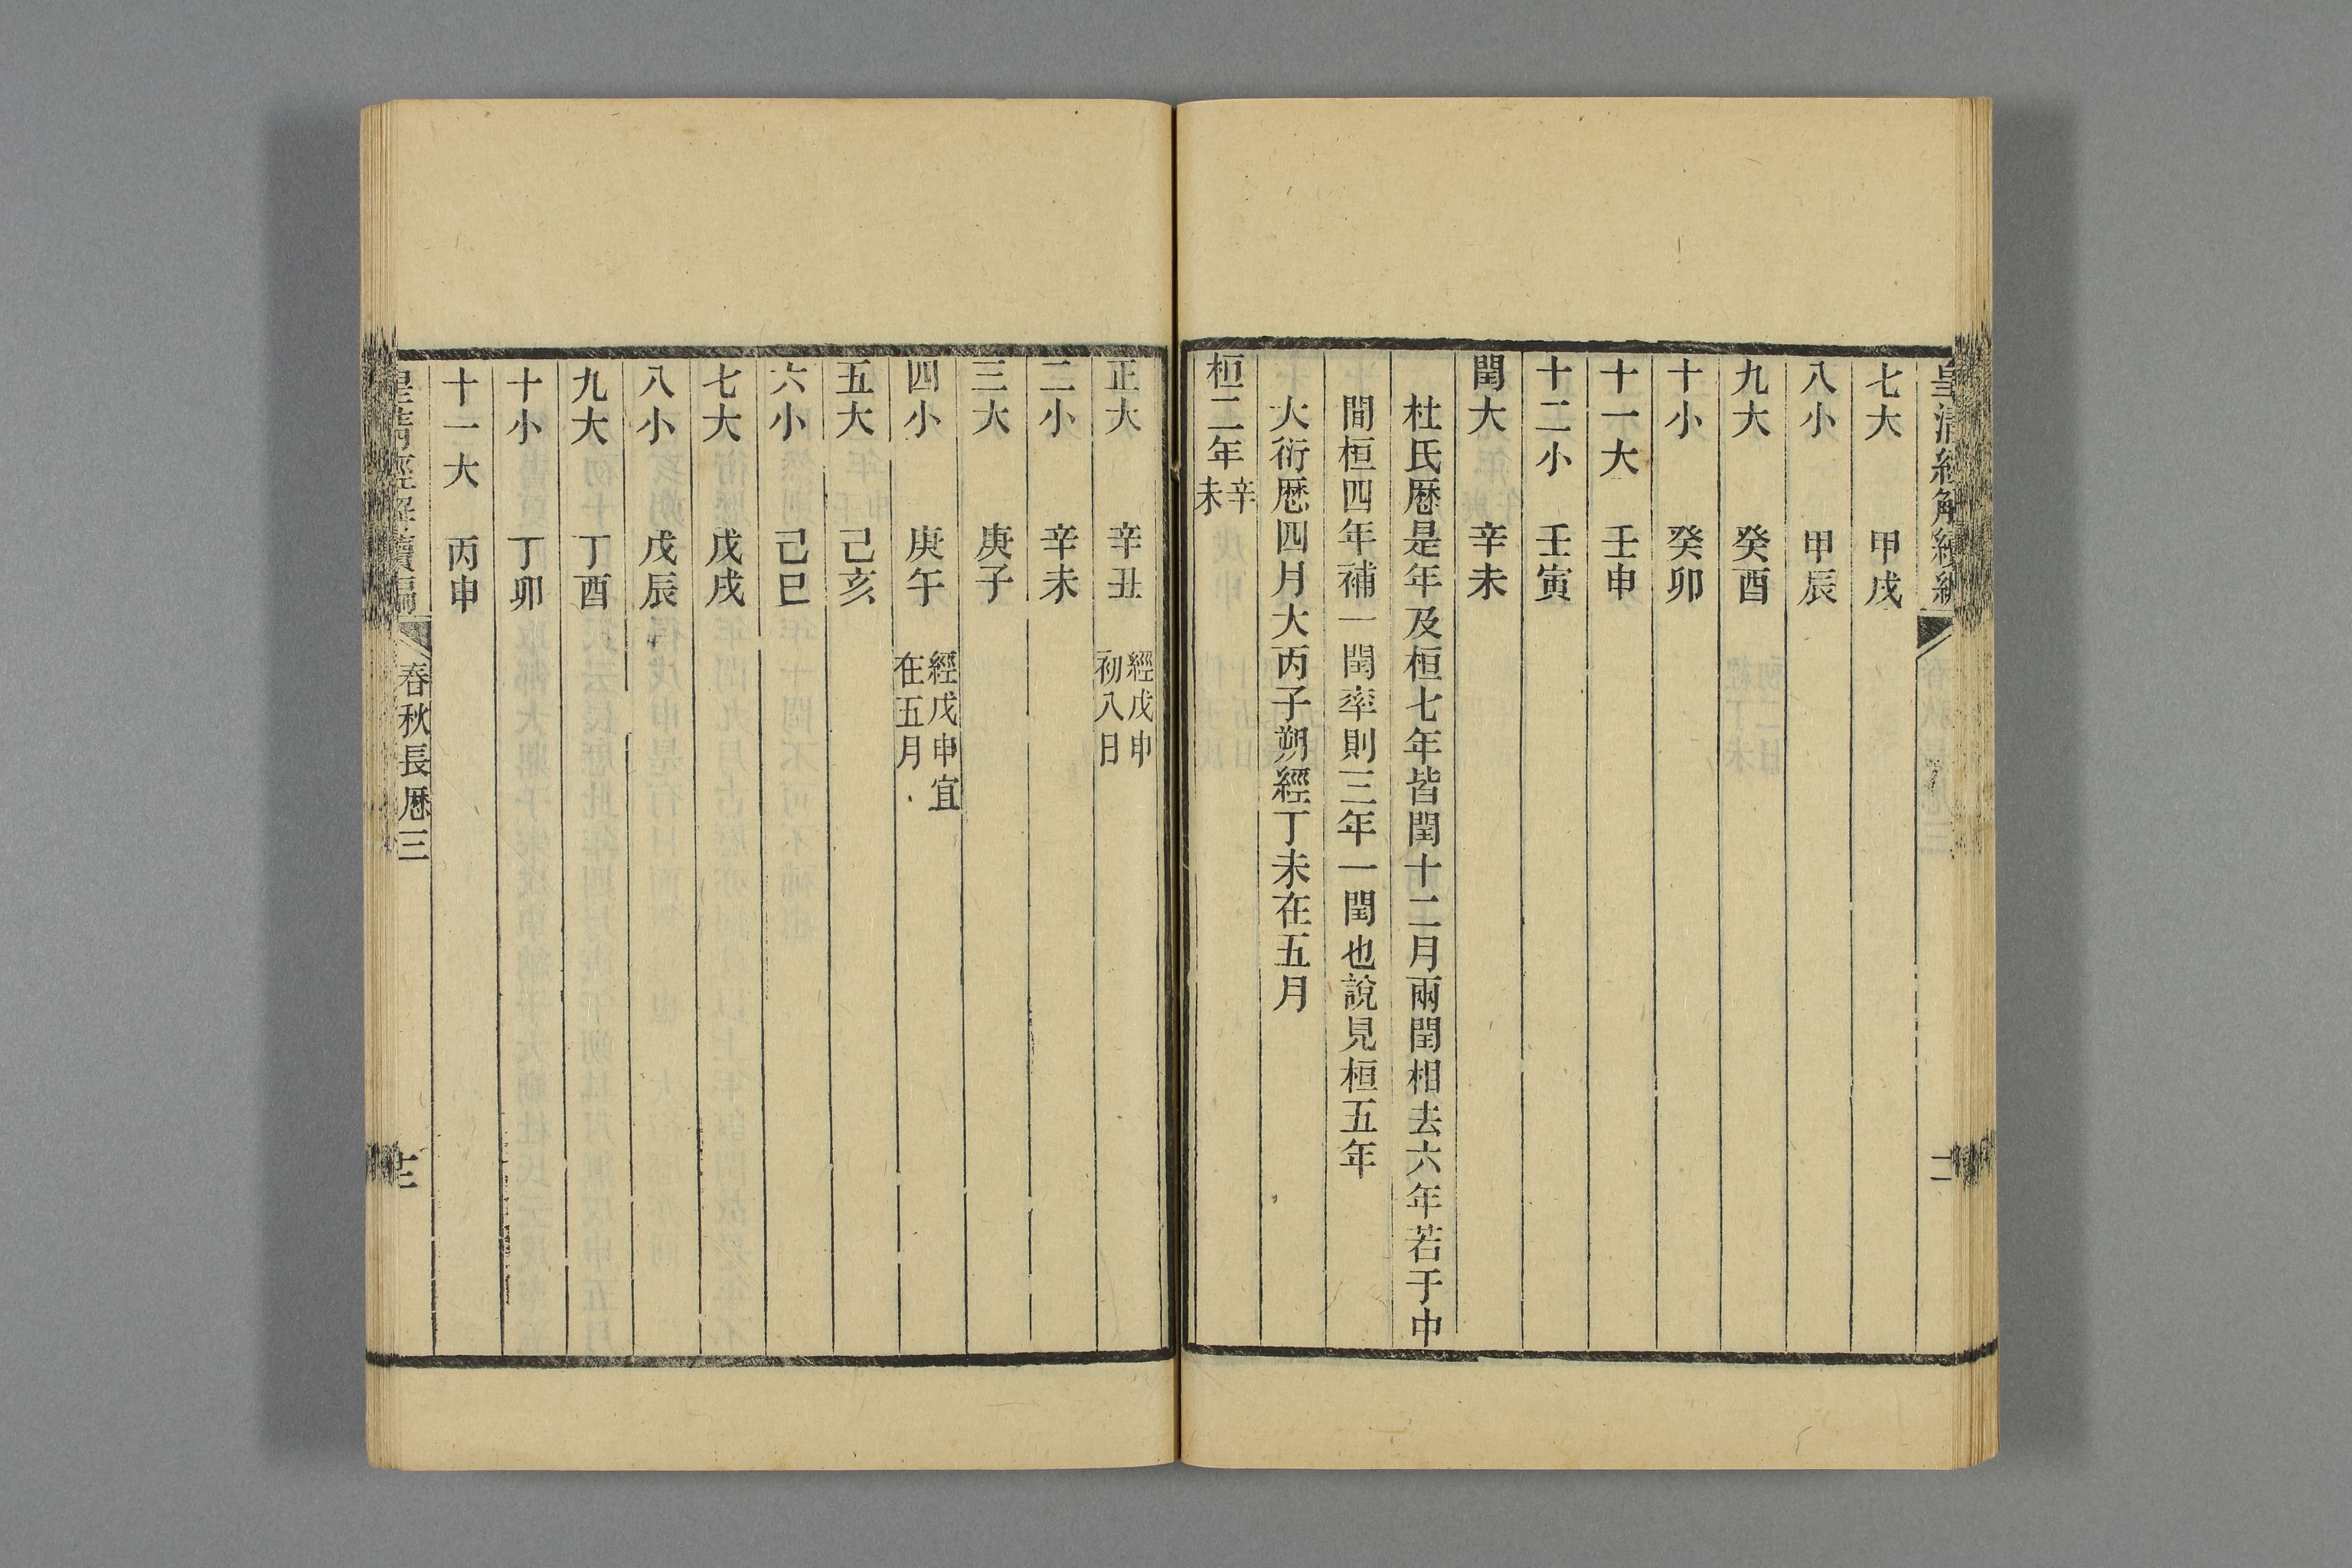 七大 甲戌
八小 甲辰
九大 癸酉
十小 癸卯
十一大 壬申
十二小 壬寅
閏大 辛未
杜氏厯是年及桓七年皆閏十二月兩閏相去六年若于中
間桓四年補一閏率則三年一閏也說見桓五年
大衍厯四月大丙子朔經丁未在五月
桓二年辛未
正大 辛丑 經戊申初八日
二小 辛未
三大 庚子
四小 庚午 經戊申宜在五月
五大 己亥
六小 己巳
七大 戊戌
八小 戊辰
九大 丁酉
十小 丁卯
十一大 丙申
皇清經解續編 春秋長厯三